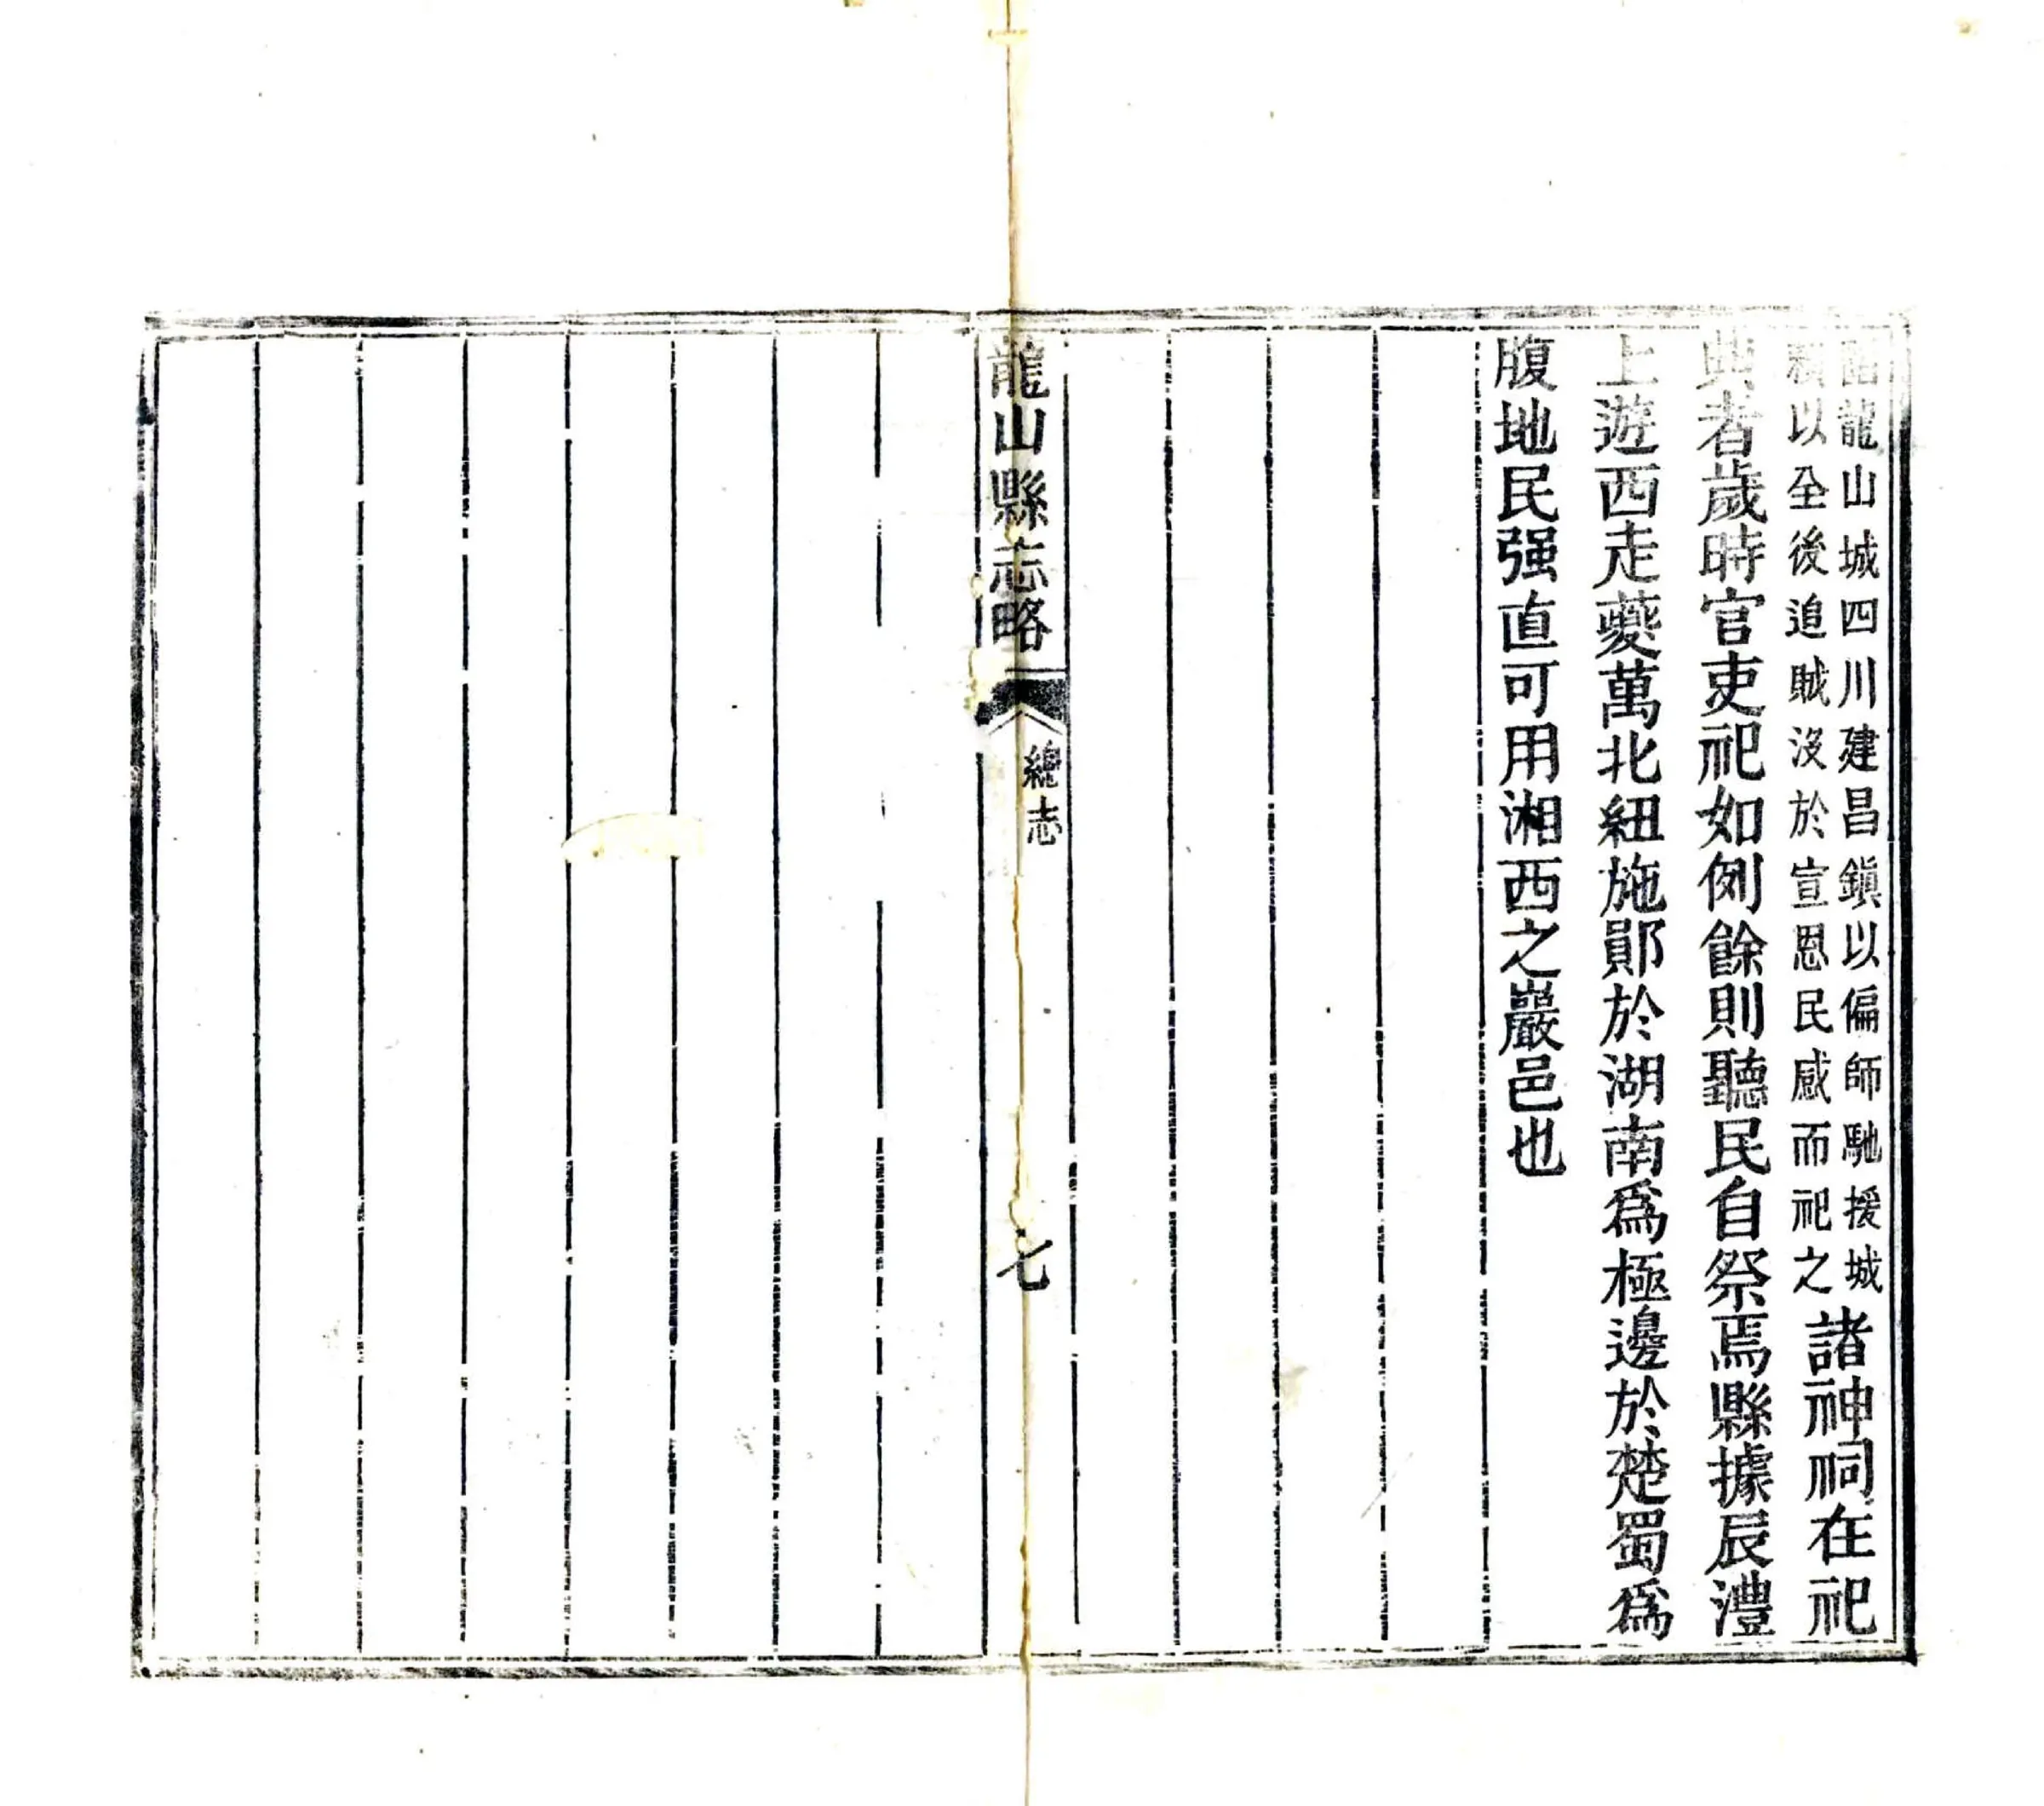 龍山城四川建昌鎮以偏師馳援城
賴以全後追賊没於宣恩民感而祀之
諸神祠在祀
典者歲時官吏祀如例餘則聽民自祭焉縣據辰澧
上遊西走夔萬北紐施鄖於湖南爲極邊於楚蜀爲
腹地民强直可用湘西之巖邑也
龍山縣志略
總志
七